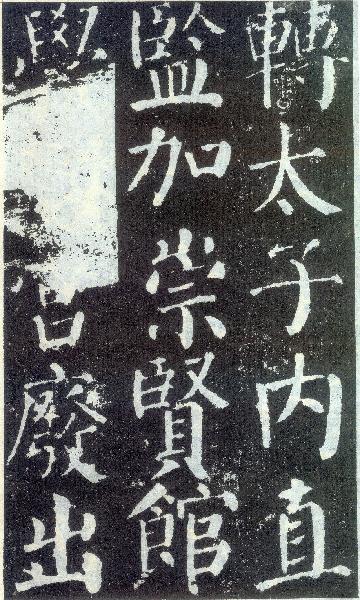 轉太子內直
監加崇賢館
學宮廢出